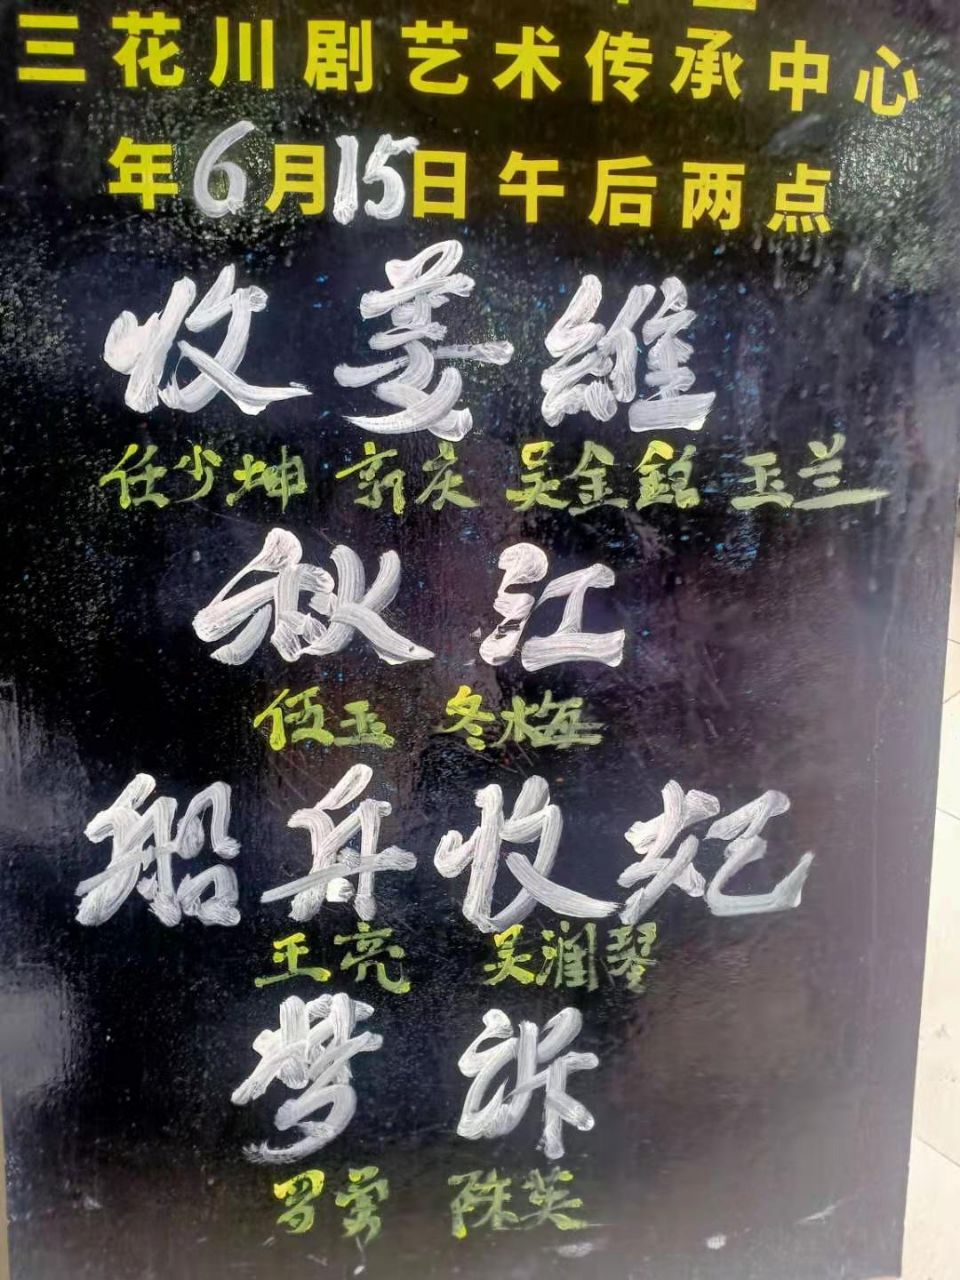 三花川剧艺术传承中心
年6月15日午后两点
收姜維
任少坤 新庆 吴金銘 玉兰
秋江
伍玉 冬梅
船舟收妃
王亮 吴润琴
梦诉
罗勇 陈英